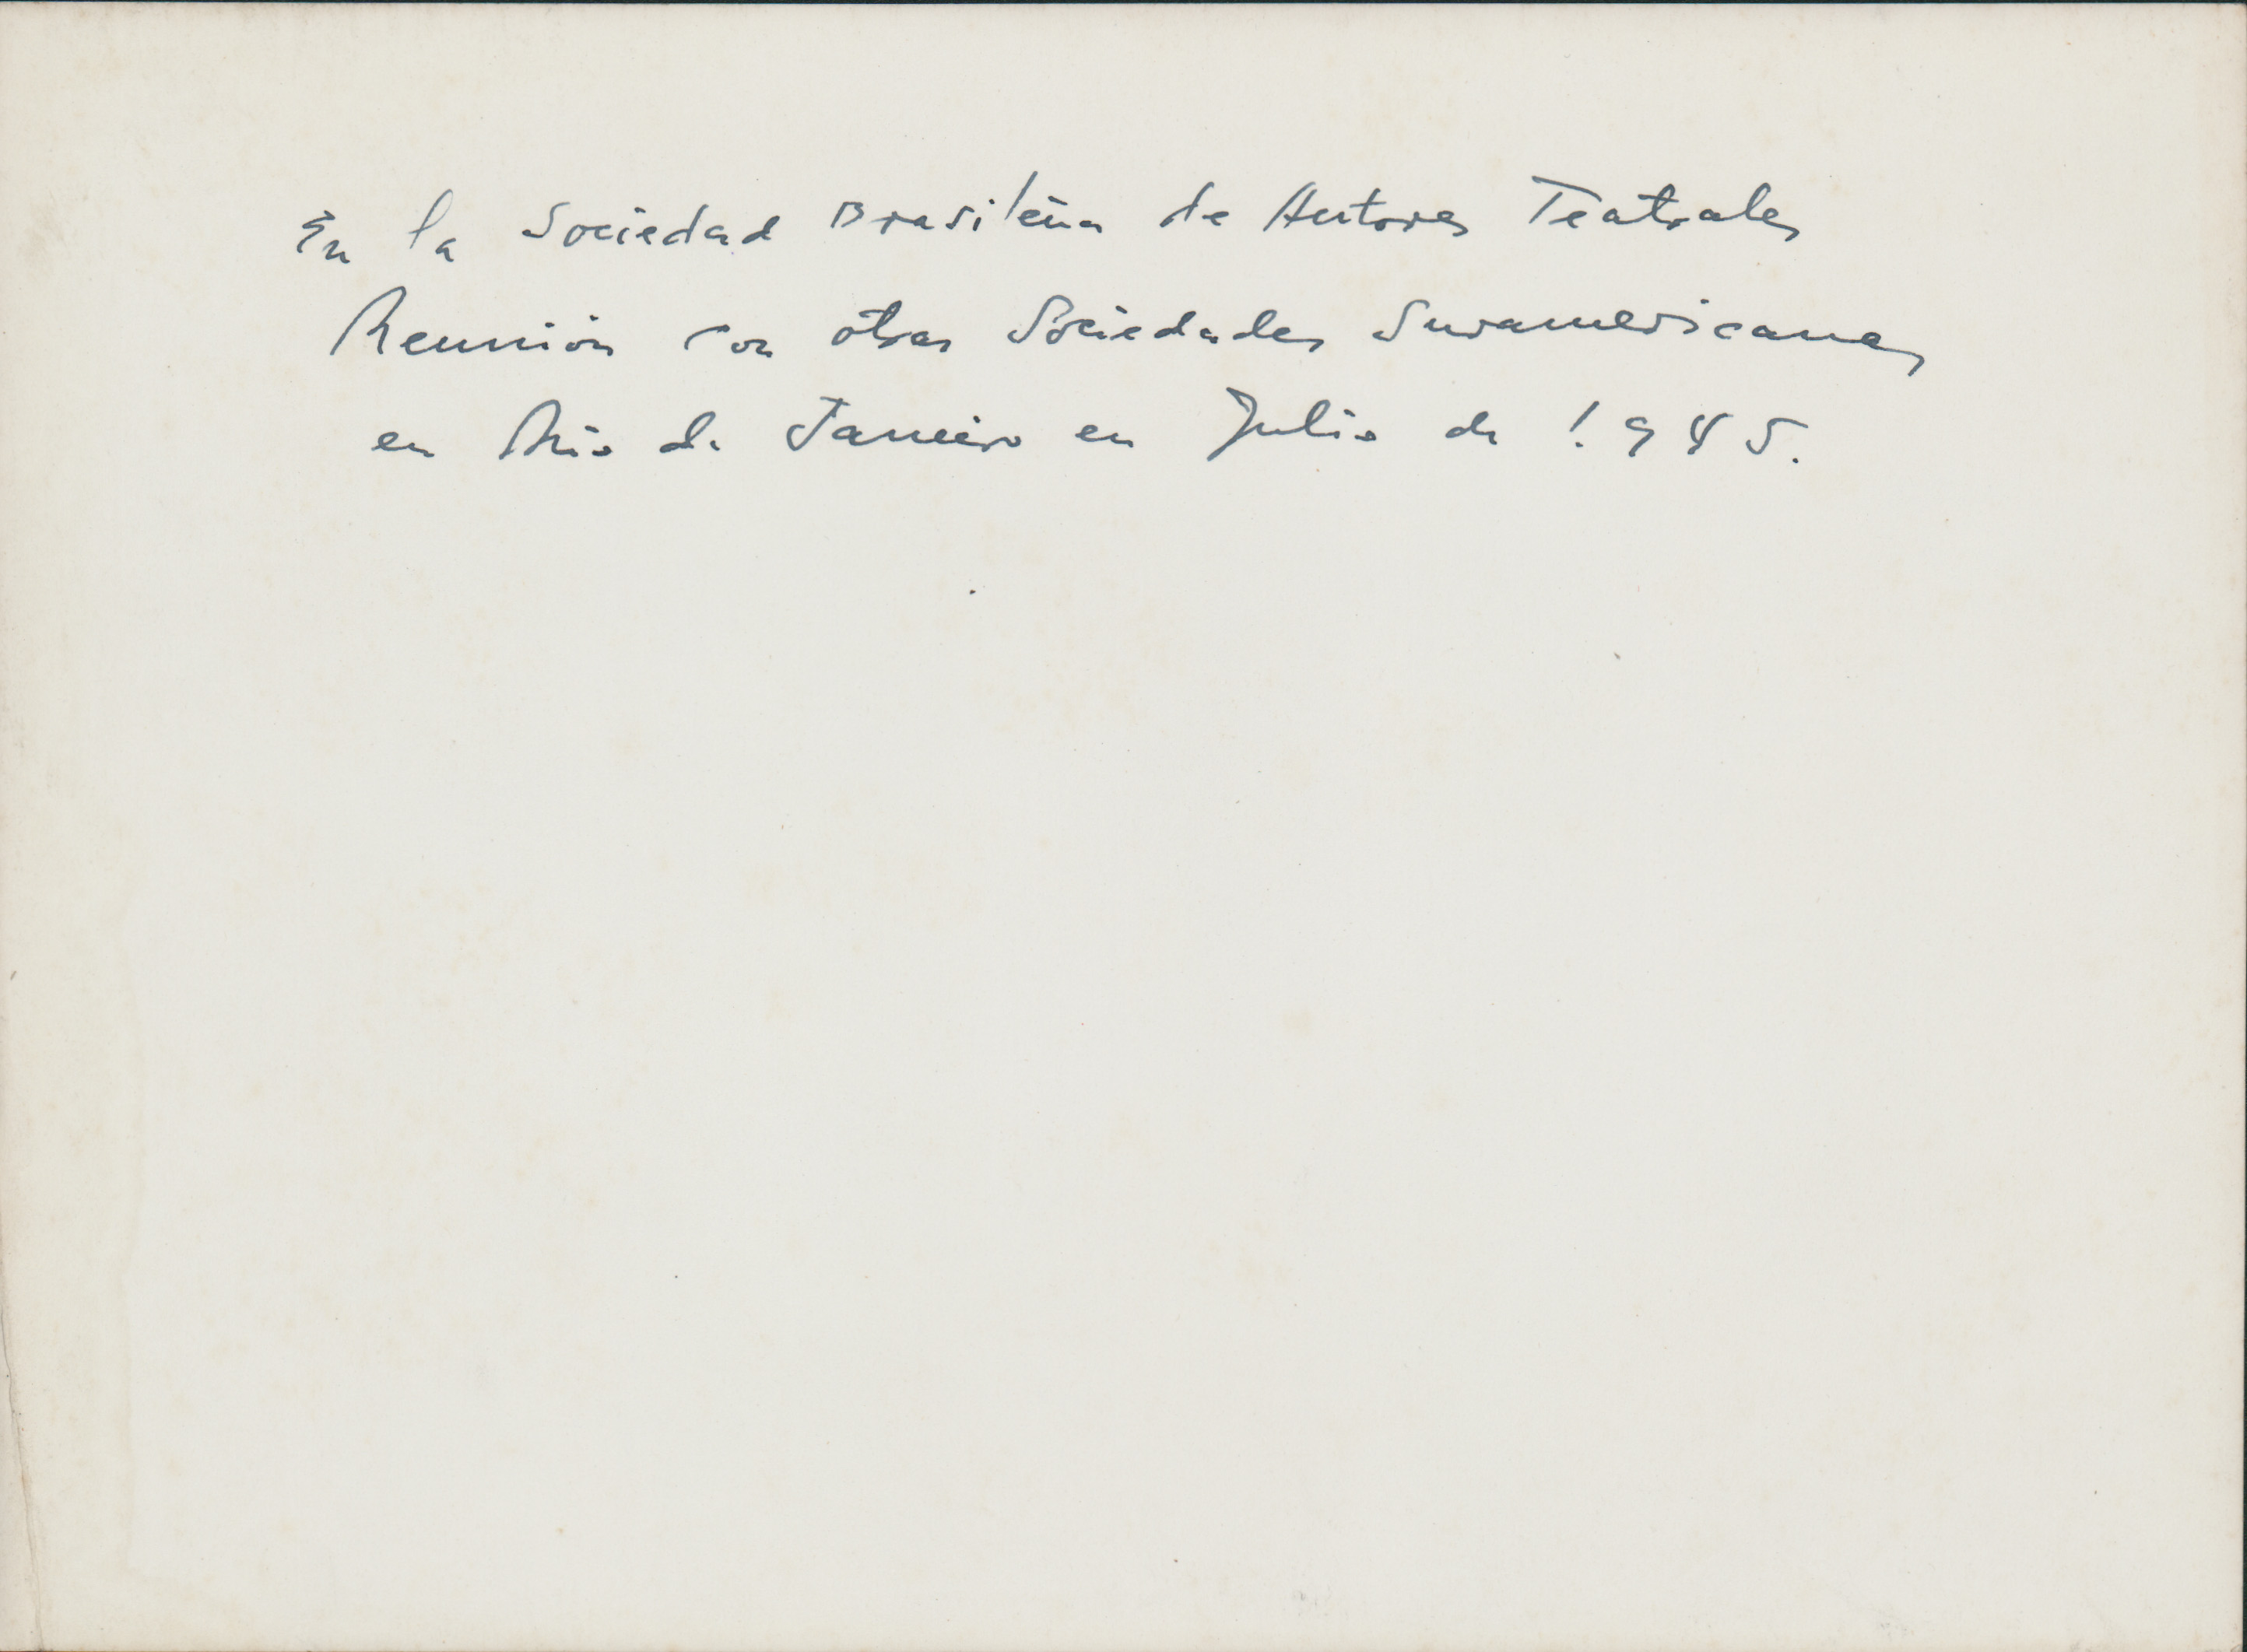 En la Sociedad Brasileña de Autores Teatrales
Reunión con otras Sociedades Suramericanas
en Río de Janeiro en Julio de 1.945.